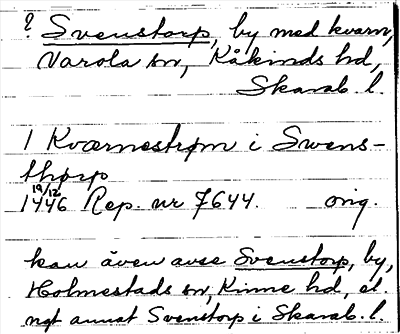 ? Svenstorp, by med kvarn,
Varola sn, Kåkinds hd,
Skarab. l.
1 Kværnestrøm i Swens-
thorp
19/12
1446 Rep. nr 7644. orig.
kan även avse Svenstorp, by,
Holmestads sn, Kinne hd, el.
ngt annat Svenstorp i Skarab. l.